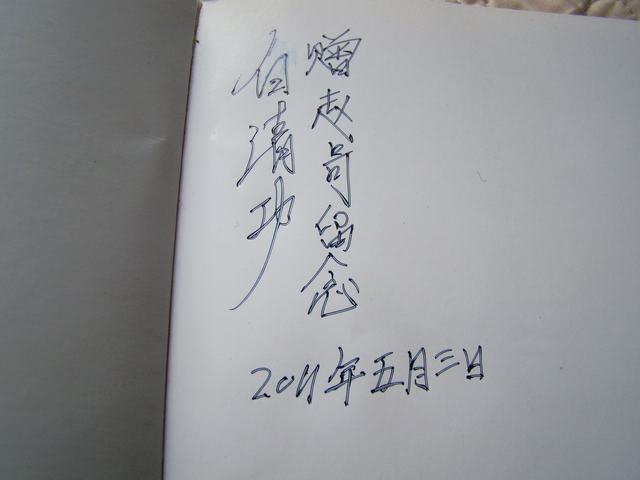 赠赵哥留念
白清功
2011年五月三日